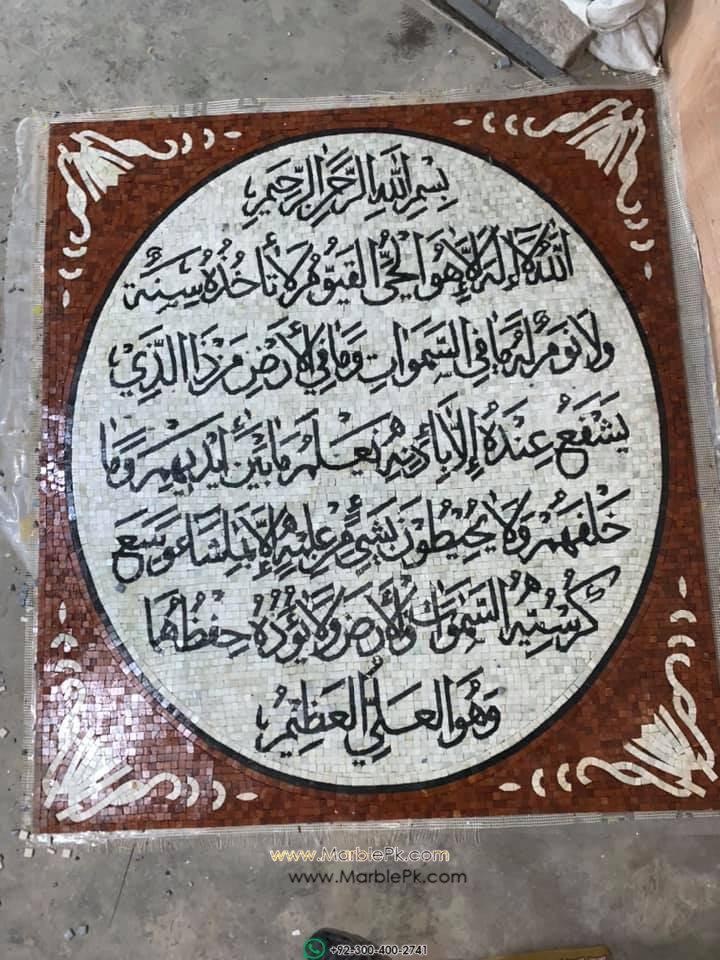 بِسْمِ اللَّهِ الرَّحْمَنِ الرَّحِيمِ
اللَّهُ لَا إِلَهَ إِلَّا هُوَ الْحَيُّ الْقَيُّومُ لَا تَأْخُذُهُ سِنَةٌ
وَلَا نَوْمٌ لَهُ مَا فِي السَّمَوَاتِ وَمَا فِي الْأَرْضِ مَنْ ذَا الَّذِي
يَشْفَعُ عِنْدَهُ إِلَّا بِإِذْنِهِ يَعْلَمُ مَا بَيْنَ أَيْدِيهِمْ وَمَا
خَلْفَهُمْ وَلَا يُحِيطُونَ بِشَيْءٍ مِنْ عِلْمِهِ إِلَّا بِمَا شَاءَ وَسِعَ
كُرْسِيُّهُ السَّمَوَاتِ وَالْأَرْضَ وَلَا يَئُودُهُ حِفْظُهُمَا
وَهُوَ الْعَلِيُّ الْعَظِيمُ
www.MarblePk.com
www.MarblePk.com
+92-300-400-2741